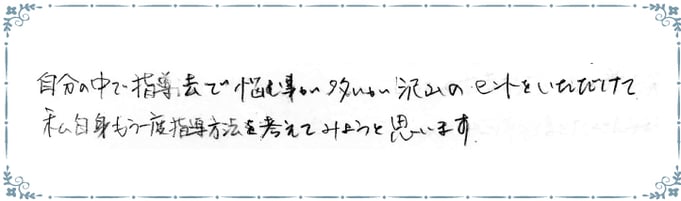 自分の中で指導法で悩む事が多いが沢山のヒントをいただけて
私自身もう一度指導方法を考えてみようと思います。